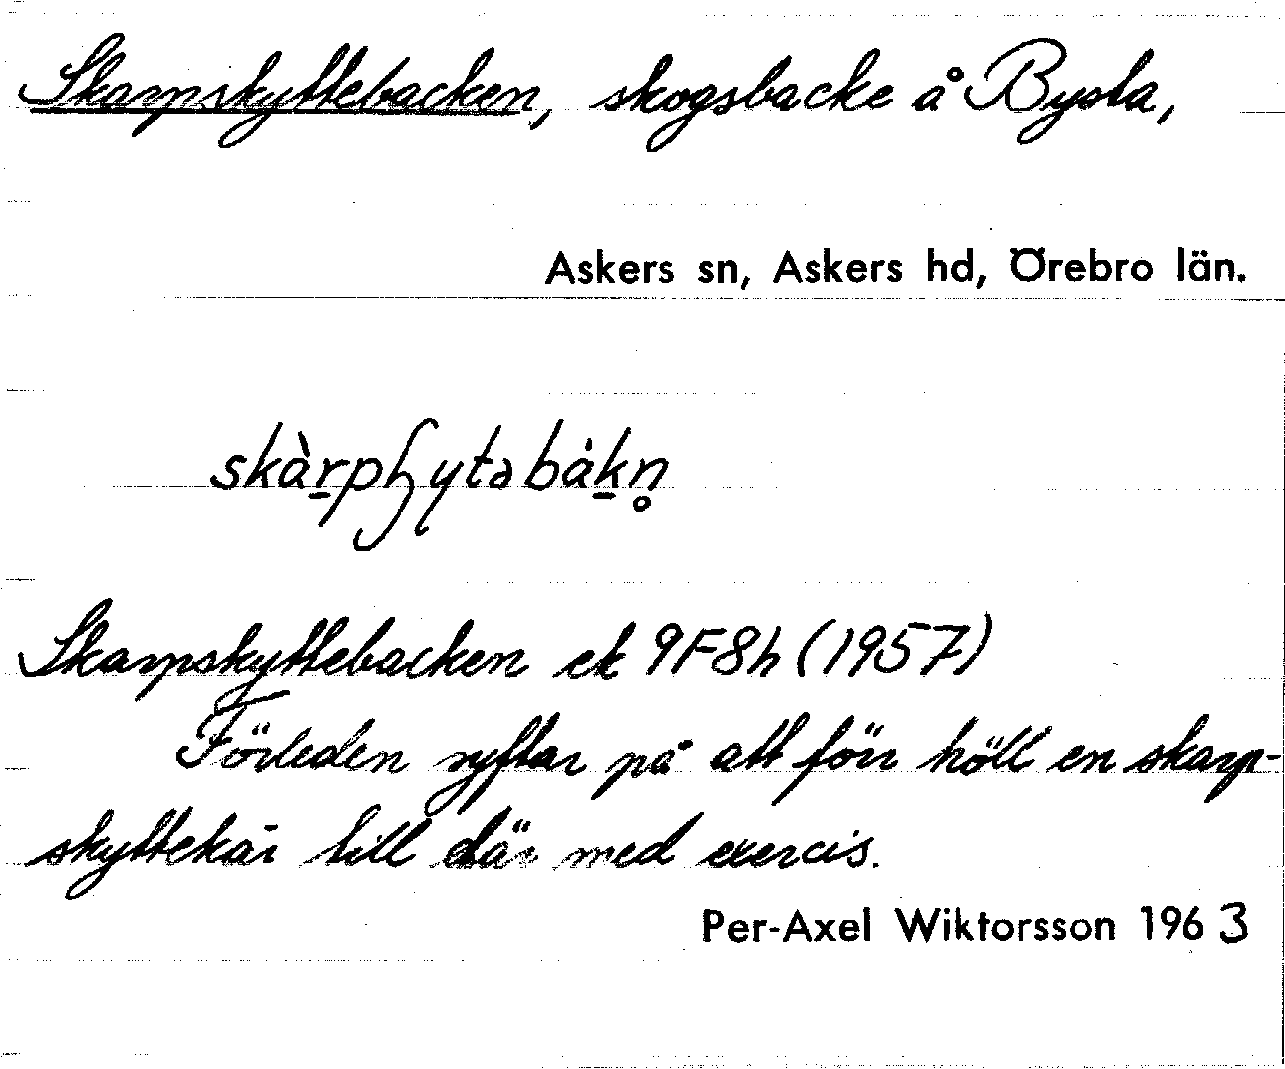 Skarpskyttebacken, skogsbacke å Bysta,
Askers sn, Askers hd, Örebro län.
skàrpɧytəbàkn̥
Skarpskyttebacken ek 9F8h (1957)
Förleden syftar på att förr höll en skarp-
skyttekår till där med exercis.
Per-Axel Wiktorsson 1963